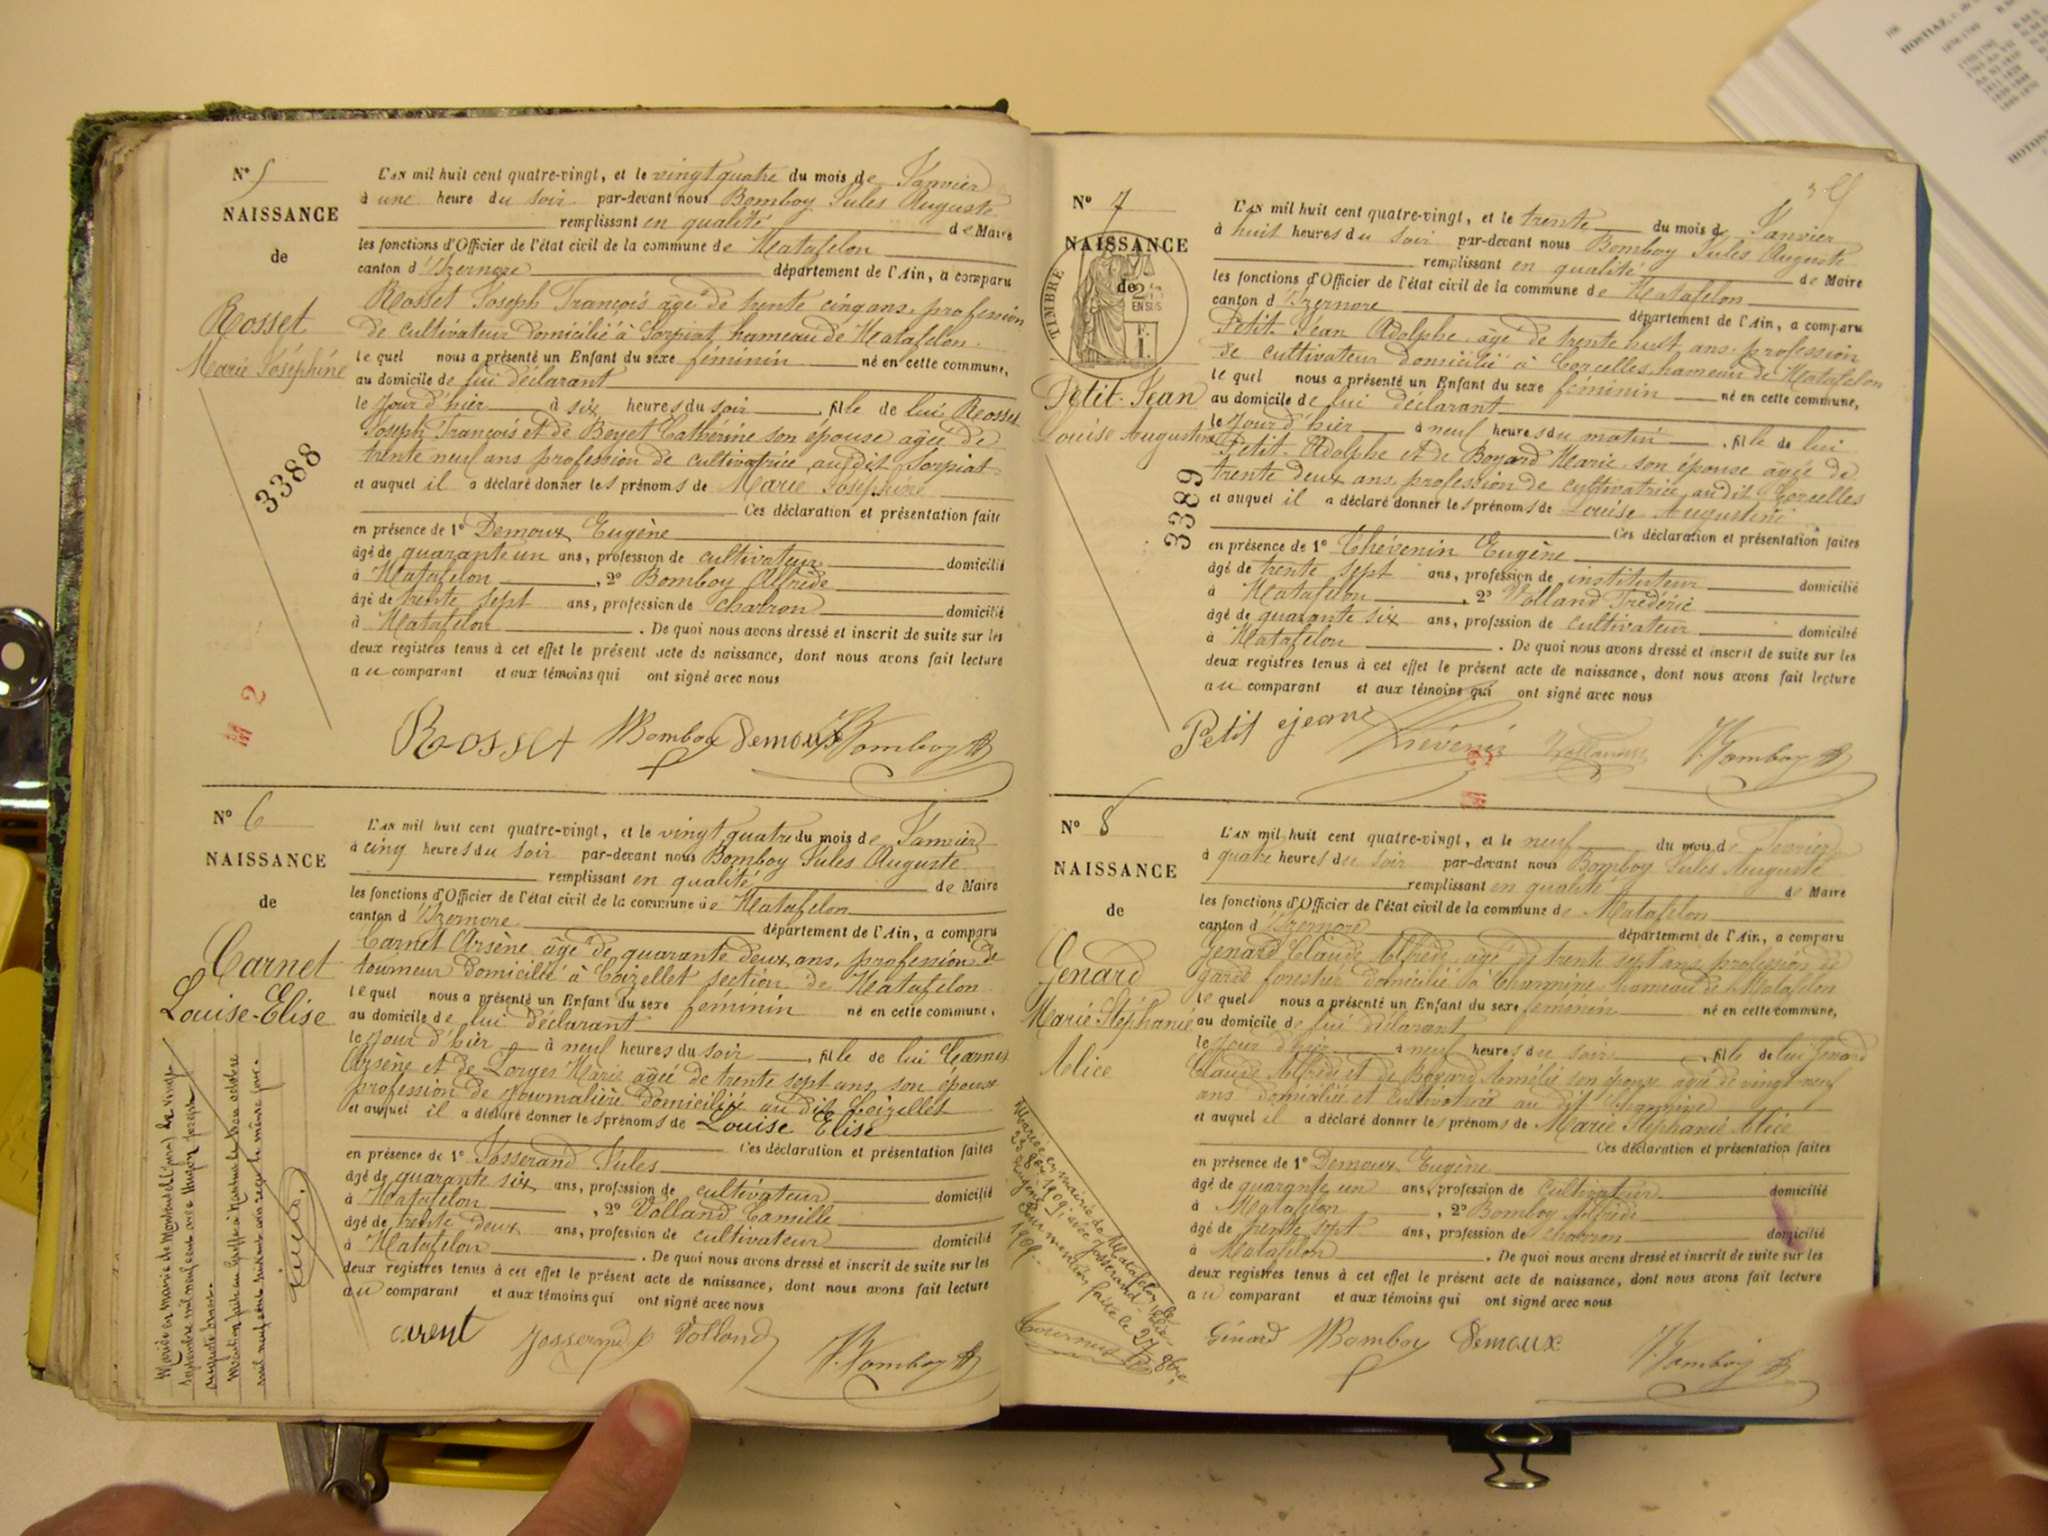 N° 5
NAISSANCE
de
Rosset
Marie Joséphine
3388
M 2
L'AN mil huit cent quatre-vingt, et le vingt quatre du mois de Janvier
à une heure du soir par-devant nous Bomboy Jules Auguste
remplissant en qualité de Maire
les fonctions d'Officier de l'état civil de la commune de Matafelon
canton d'Izernore département de l'Ain, a comparu
Rosset Joseph François âgé de trente cinq ans, profession
de cultivateur domicilié à Sorpiat, hameau de Matafelon.
le quel nous a présenté un Enfant du sexe féminin né en cette commune,
au domicile de lui déclarant
le jour d'hier à six heures du soir, fille de lui Rosset
Joseph François et de Beyet Catherine son épouse agée de
trente neuf ans profession de cultivatrice au dit Sorpiat
et auquel il a déclaré donner les prénoms de Marie Joséphine
Ces déclaration et présentation faites
en présence de 1° Demoux Eugène
âgé de quarante un ans, profession de cultivateur domicilié
à Matafelon, 2° Bomboy Alfrède
âgé de trente sept ans, profession de charron domicilié
à Matafelon. De quoi nous avons dressé et inscrit de suite sur les
deux registres tenus à cet effet le présent acte de naissance, dont nous avons fait lecture
au comparant et aux témoins qui ont signé avec nous
Rosset Bomboy Demoux Bomboy
N° 6
NAISSANCE
de
Carnet
Louise-Elise
Mariée en mairie de Montreuil le vingt
septembre mil neuf cent avec Hugon Joseph
Mention faite au greffe à Nantua le trois octobre
L'AN mil huit cent quatre-vingt, et le vingt quatre du mois de Janvier
à cinq heures du soir par-devant nous Bomboy Jules Auguste
remplissant en qualité de Maire
les fonctions d'Officier de l'état civil de la commune de Matafelon
canton d'Izernore département de l'Ain, a comparu
Carnet Arsène âgé de quarante deux ans, profession de
tourneur domicilié à Coizellet section de Matafelon
le quel nous a présenté un Enfant du sexe féminin né en cette commune,
au domicile de lui déclarant
le jour d'hier à neuf heures du soir, fille de lui Carnet
Arsène et de Lorges Marie agée de trente sept ans, son épouse
profession de journalière domiciliée au dit Coizellet
et auquel il a déclaré donner les prénoms de Louise Elise
Ces déclaration et présentation faites
en présence de 1° Josserand Jules
âgé de quarante six ans, profession de cultivateur domicilié
à Matafelon, 2° Volland Camille
âgé de trente deux ans, profession de cultivateur domicilié
à Matafelon. De quoi nous avons dressé et inscrit de suite sur les
deux registres tenus à cet effet le présent acte de naissance, dont nous avons fait lecture
au comparant et aux témoins qui ont signé avec nous
Josserand J Volland Bomboy
N° 7
NAISSANCE
de
TIMBRE
Petit-Jean
Louise Augustine
3389
L'AN mil huit cent quatre-vingt, et le trente du mois de Janvier
à huit heures du soir par-devant nous Bomboy Jules Auguste
remplissant en qualité de Maire
les fonctions d'Officier de l'état civil de la commune de Matafelon
canton d'Izernore département de l'Ain, a comparu
Petit-Jean Adolphe âgé de trente huit ans, profession
de cultivateur domicilié à Corcelles hameau de Matafelon
le quel nous a présenté un Enfant du sexe féminin né en cette commune,
au domicile de lui déclarant
le jour d'hier à neuf heures du matin, fille de lui
Petit-Adolphe et de Boyard Marie son épouse agée de
trente deux ans, profession de cultivatrice au dit Corcelles
et auquel il a déclaré donner les prénoms de Louise Augustine
Ces déclaration et présentation faites
en présence de 1° Thévenin Eugène
âgé de trente sept ans, profession de instituteur domicilié
à Matafelon, 2° Volland Frédéric
âgé de quarante six ans, profession de cultivateur domicilié
à Matafelon. De quoi nous avons dressé et inscrit de suite sur les
deux registres tenus à cet effet le présent acte de naissance, dont nous avons fait lecture
au comparant et aux témoins qui ont signé avec nous
Petit jean Thévenin Volland Bomboy
N° 8
NAISSANCE
de
Genard
Marie Stéphanie
Alice
Mariée en mairie de Matafelon le
23 8bre 1909, avec Josserand
Pour mention faite le 27 8bre
1909.
L'AN mil huit cent quatre-vingt, et le neuf du mois de Février
à quatre heures du soir par-devant nous Bomboy Jules Auguste
remplissant en qualité de Maire
les fonctions d'Officier de l'état civil de la commune de Matafelon
canton d'Izernore département de l'Ain, a comparu
Genard Claude Alfrède âgé de trente sept ans, profession de
garde forestier domicilié à Charmine hameau de Matafelon
le quel nous a présenté un Enfant du sexe féminin né en cette commune,
au domicile de lui déclarant
le jour d'hier à neuf heures du soir, fille de lui Genard
Claude Alfrède et de Boyard Amélie son épouse agée de vingt neuf
ans domiciliée et cultivatrice au dit Charmine
et auquel il a déclaré donner les prénoms de Marie Stéphanie Alice
Ces déclaration et présentation faites
en présence de 1° Demoux Eugène
âgé de quarante un ans, profession de cultivateur domicilié
à Matafelon, 2° Bomboy Alfrède
âgé de trente sept ans, profession de charron domicilié
à Matafelon. De quoi nous avons dressé et inscrit de suite sur les
deux registres tenus à cet effet le présent acte de naissance, dont nous avons fait lecture
au comparant et aux témoins qui ont signé avec nous
Génard Bomboy Demoux Bomboy